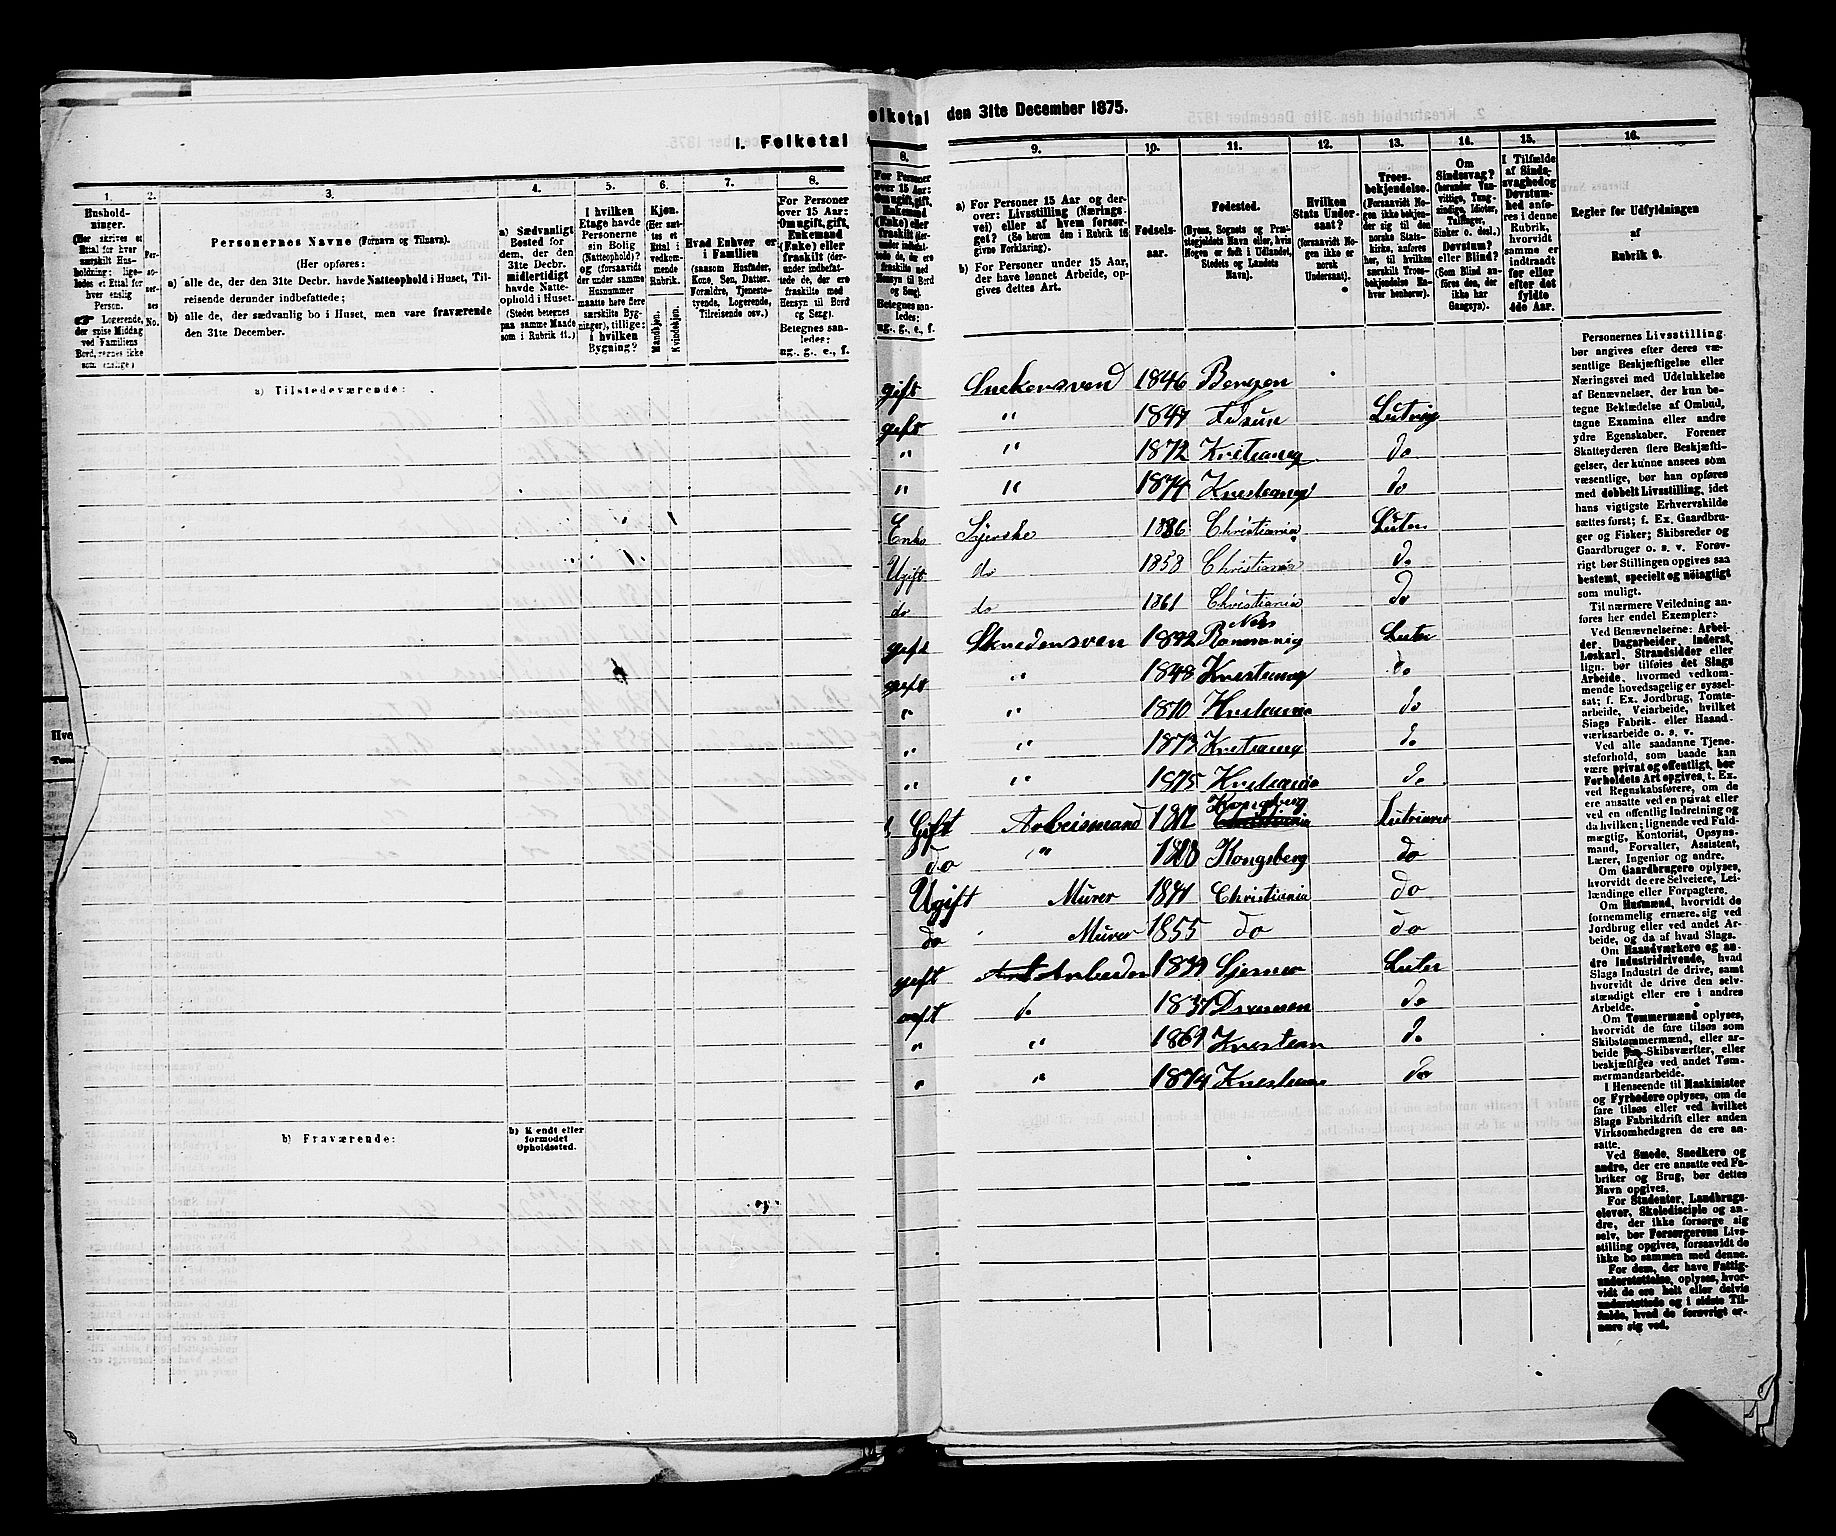 I. Folketal
1. 2. 3. 4. 5. 6. 7. 8.
Hushold-
ninger.
(Her skrives et
Ettal for hver
særskilt Hus-
holdning; lige-
ledes et Ettal for
hver enslig
Person.
Logerende,
der spise Middag
ved Familiens
Bord, regnes ikke
som enslige)
Per-
so-
ner-
nes
No.
Personernes Navne (Fornavn og Tilnavn).
(Her opføres:
a) alle de, der den 31te Decbr. havde Natteophold i Huset, Til-
reisende derunder indbefattede;
b) alle de, der sædvanlig bo i Huset, men vare fraværende
den 31te December.
a) Sædvanligt
Bosted for
dem, der den
31te Decbr.
midlertidigt
havde Natte-
ophold i Huset.
(Stedet betegnes
paa samme Maade
som i Rubrik 11.)
I hvilken
Etage havde
Personerne
sin Bolig
(Natteophold)?
og (forsaavidt
der under samme
Husnummer
maatte høre flere
særskilte Byg-
ninger), tillige:
i hvilken
Bygning?
Kjøn.
(Her sæt-
tes et
Ettal i
vedkom-
mende
Rubrik.
Mandkjøn.
Kvindekjøn.
Hvad Enhver er
i Familien
(saasom Husfader,
Kone, Søn, Datter,
Forældre, Tjeneste-
tyende, Logerende,
Tilreisende osv.)
For Personer
over 15 Aar:
Om ugift, gift,
Enkemand
(Enke) eller
fraskilt (der-
under indbefat-
tede de, der ere
fraskilte med
Hensyn til Bord
og Seng).
Betegnes saa-
ledes:
ug., g., e., f.
a) Tilstedeværende:
b) Fraværende:
b) Kendt eller
formodet
Opholdssted.
olketal den 31te December 1875.
8. 9. 10. 11. 12. 13. 14. 15. 16.
a) For Personer 15 Aar og der-
over: Livsstilling (Nærings-
vei) eller af hvem forsør-
get? (Se herom den i Rubrik 16
givne Forklaring).
b) For Personer under 15 Aar,
der have lønnet Arbeide, op-
gives dettes Art.
Fødsels-
aar.
Fødested.
(Byens, Sognets og Præ-
stegjeldets Navn eller, hvis
Nogen er født i Udlandet,
Stedets og Landets
Navn).
Hvilken
Stats Under-
saat?
(forsaavidt No-
gen ikke er
norsk
Undersaat).
Troes-
bekjendelse.
(Forsaavidt No-
gen ikke bekjen-
der sig til den
norske Stats-
kirke, anføres
her, til hvilket
særskilt Tros-
bekjendelse En-
hver henhører).
Om
Sindssvag?
(herunder Van-
vittige, Tung-
sindige, Idioter,
Tullinger,
Sinker o. desl.)
Døvstum?
eller Blind?
(Som Blind an-
føres den, der
ikke har
Gangsyn).
I Tilfælde
af Sinds-
svaghed og
Døvstum-
hed anfø-
res i denne
Rubrik,
hvorvidt
samme er
indtraadt
før eller
efter det
fyldte
4de Aar.
Regler for Udfyldningen
af
Rubrik 9.
gift Snekersvend 1846 Bergen
gift " 1847 Lutrig
" " 1872 Kristiania do
" " 1874 Kristiania do
Enke Syerske 1836 Christiania Luter
Ugift do 1858 Christiania do
do do 1861 Christiania do
Nes
gift 1842 Rommerig Luter
gift " 1848 Kristiania do
" " 1870 Kristiania do
" " 1873 Kristiania do
" " 1875 Kristiania do
Kongsberg
Gift Arbeismand Christiania
do " Kongsberg do
Ugift Murer 1871 Christiania do
do Murer 1855 do do
gift Arbeider 1839 Luter
gift do 1837 Dramen do
" " 1869 Kristian do
" " 1874 do
Personernes Livsstilling
bør angives efter deres væ-
sentlige Beskjæftigelse eller
Næringsvei med Udelukkelse
af Benævnelser, der kun be-
tegne Beklædelse af Ombud,
tagne Examina eller andre
ydre Egenskaber. Forener
Skatteyderen flere Beskjæfti-
gelser, der kunne ansees som
væsentlige, bør han opføres
med dobbelt Livsstilling, idet
hans vigtigste Erhvervskilde
sættes først; f. Ex. Gaardbru-
ger og Fisker; Skibsreder og
Gaardbruger o. s. v. Forøv-
rigt bør Stillingen opgives saa
bestemt, specielt og nøiagtigt
som muligt.
Til nærmere Veiledning an-
føres her endel Exempler:
Ved Benævnelserne: Arbei-
der, Dagarbeider, Inderst,
Løskarl, Strandsidder eller
lign. bør tilføies det Slags
Arbeide, hvormed vedkom-
mende hovedsagelig er syssel-
sat; f. Ex. Jordbrug, Tomte-
arbeide, Veiarbeide, hvilket
Slags Fabrik- eller Haand-
værksarbeide o. s. v.
Ved alle saadanne Tjene-
steforhold, som baade kan
være privat og offentligt, bør
Forholdets Art opgives, t. Ex.
ved Regnskabsførere, om de
ere ansatte ved en privat eller
ved en offentlig Indretning og
da hvilken; lignende ved Fuld-
mægtig, Kontorist, Opsyns-
mand, Forvalter, Assistent,
Lærer, Ingeniør og andre.
Om Gaardbrugere oplyses,
hvorvidt de ere Selveiere, Lei-
lændinge eller Forpagtere.
Om Husmænd, hvorvidt de
fornemmelig ernære sig ved
Jordbrug eller ved andet Ar-
beide, og da af hvad Slags.
Om Haandværkere og an-
dre Industridrivende, hvad
Slags Industri de drive, samt
hvorvidt de drive den selv-
stændigt eller ere i andres
Arbeide.
Om Tømmermænd oplyses,
hvorvidt de fare tilsøs som
Skibstømmermænd, eller ar-
beide paa Skibsværfter, eller
beskjæftiges ved andet Tøm-
mermandsarbeide.
I Henseende til Maskinister
og Fyrbødere oplyses, om de
fare tilsøs eller ved hvilket
Slags Fabrikdrift eller anden
Virksomhedsgren de ere an-
satte.
Ved Smede, Snedkere og
andre, der ere ansatte ved Fa-
briker og Brug, bør dettes
Navn opgives.
For Studenter, Landbrugs-
elever, Skoledisciple og an-
dre, der ikke forsørge sig
selv, bør Forsørgerens Livs-
stilling opgives, forsaavidt de
ikke bo sammen med denne.
For dem, der have Fattig-
understøttelse, oplyses, hvor-
vidt de ere helt eller delvis
understøttede og i sidste Til-
fælde, hvad de forøvrigt er-
nære sig ved.